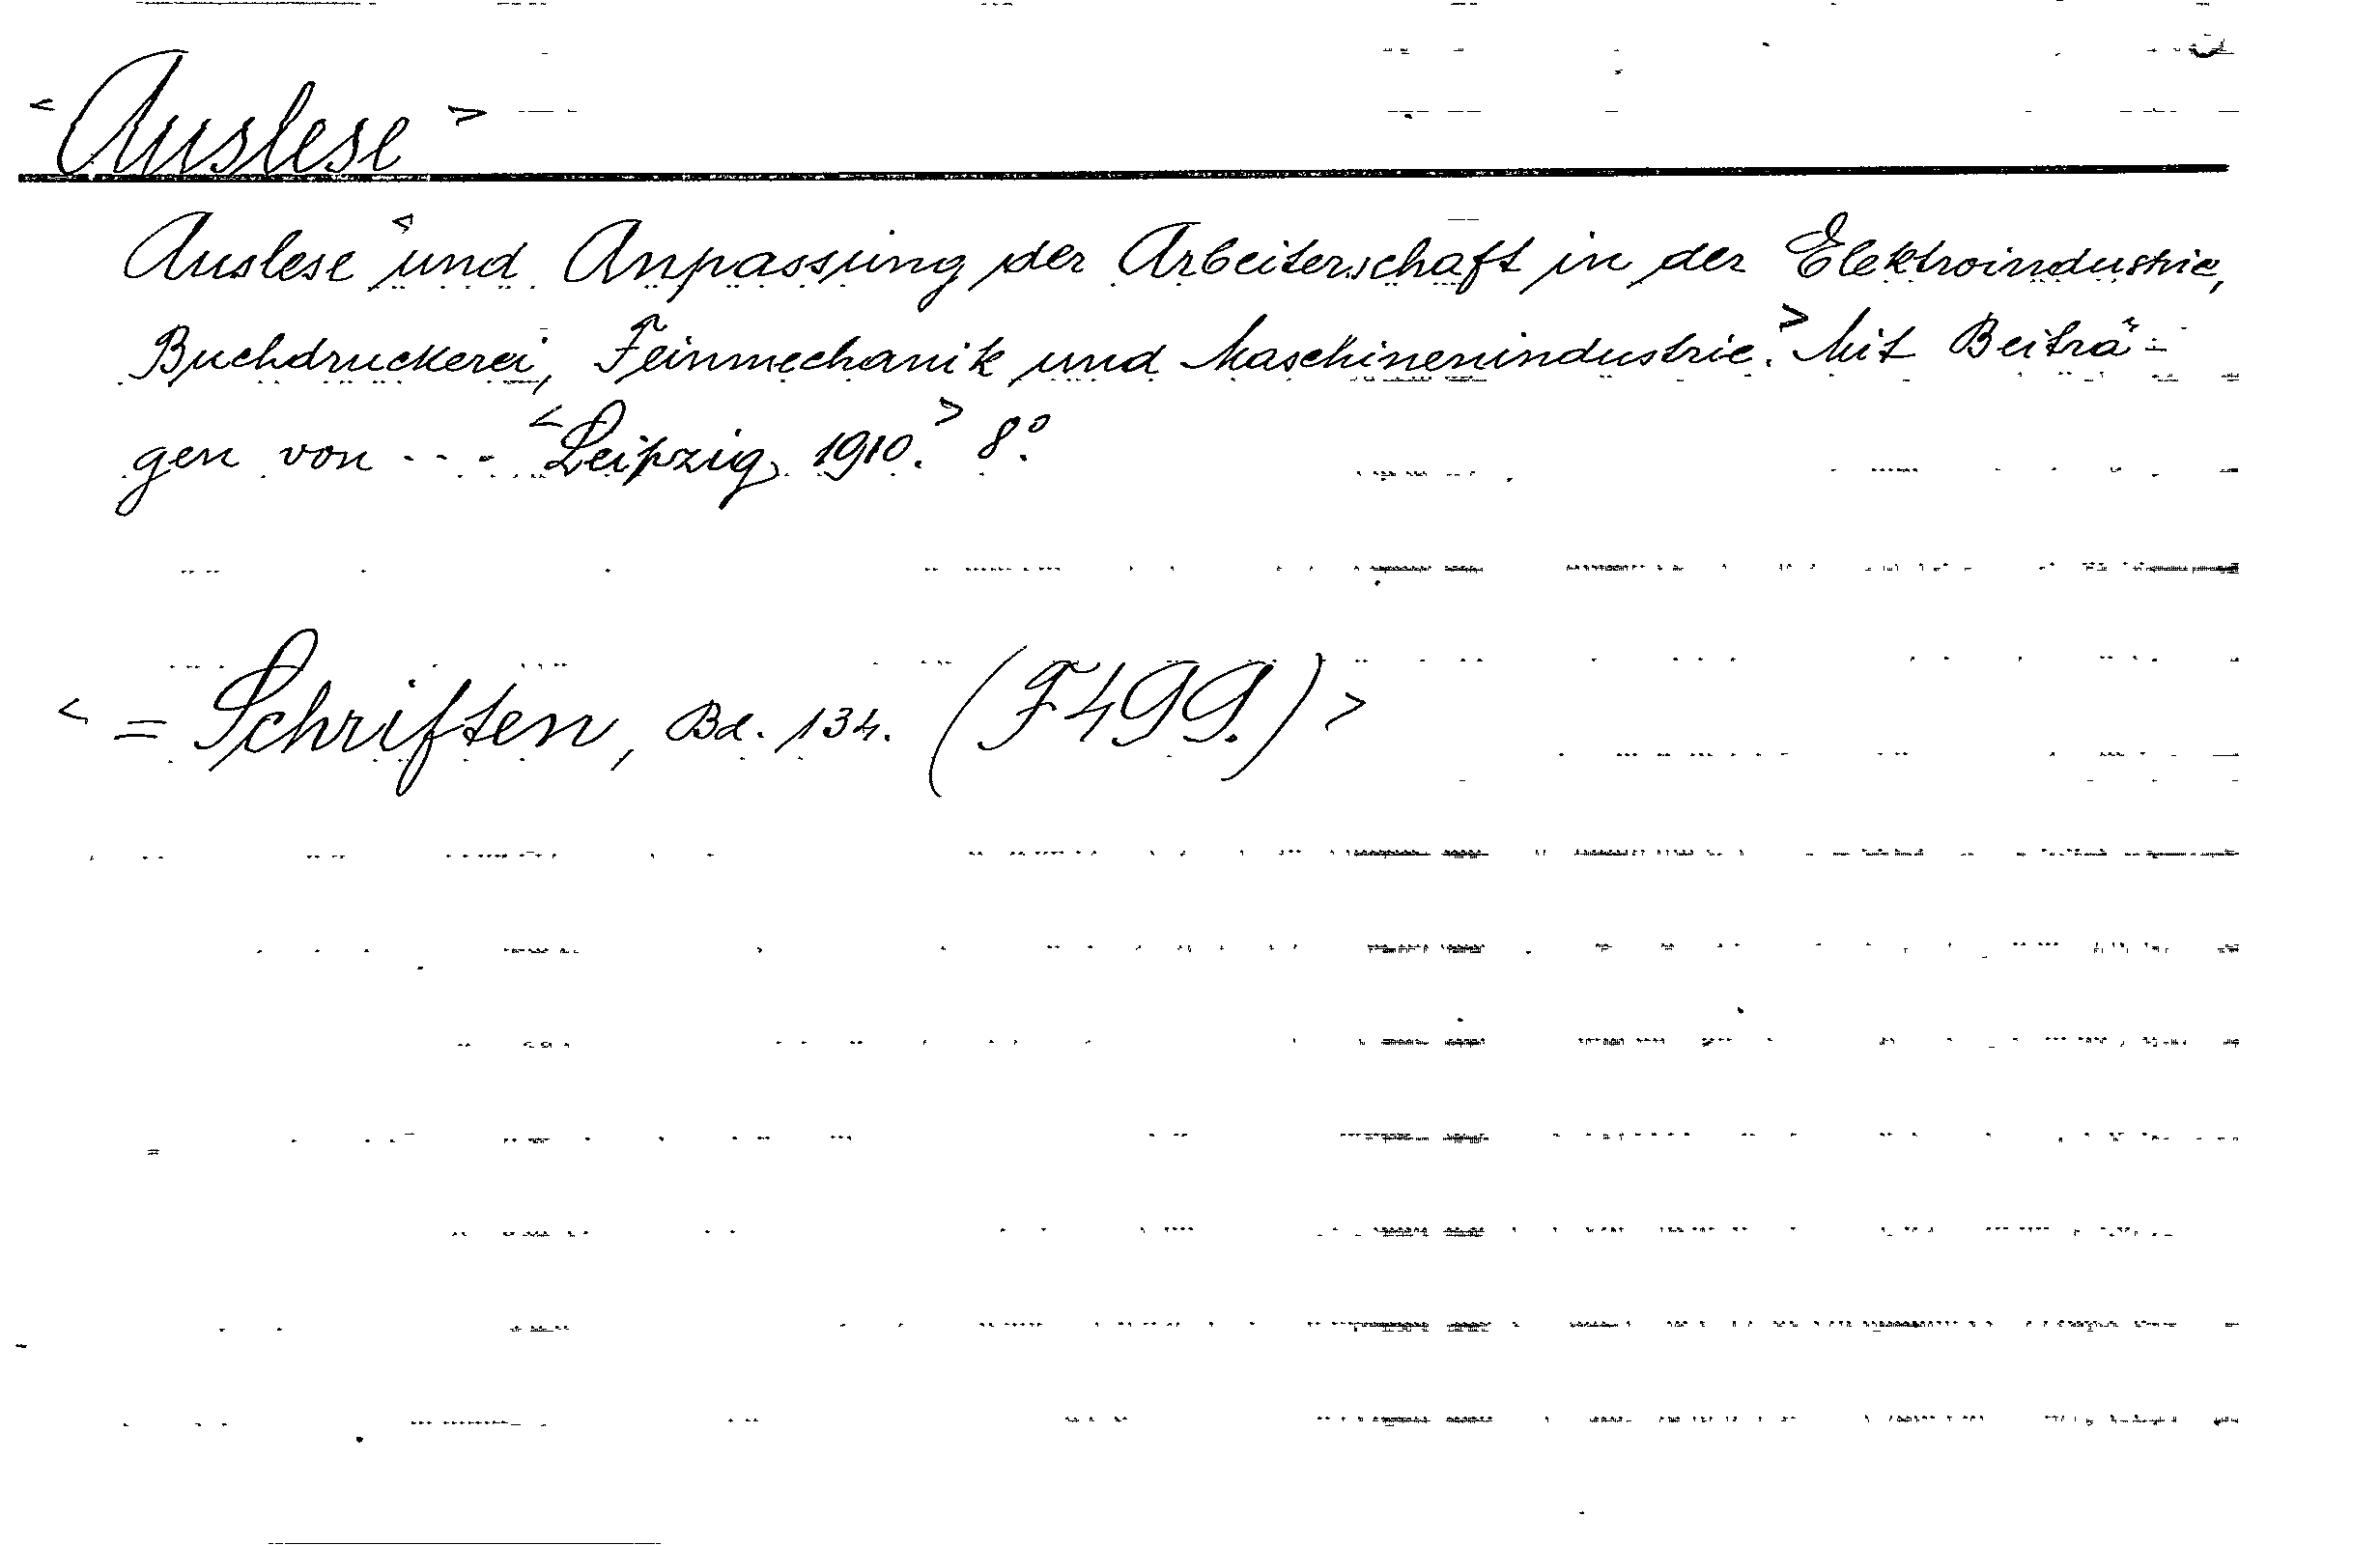 <Auslese>
Auslese <und Anpassung der Arbeiterschaft in der Elektroindustrie,
Buchdruckerei, Feinmechanik und Maschinenindustrie.> Mit Beiträ-
gen von --- <Leipzig, 1910.> 8°.
< = Schriften, Bd. 134. (F499.) >